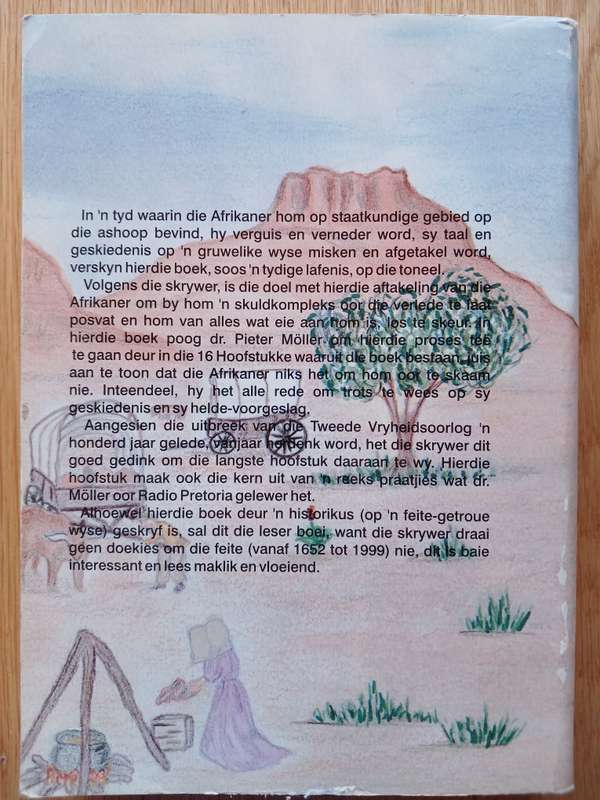 In 'n tyd waarin die Afrikaner hom op staatkundige gebied op
die ashoop bevind, hy verguis en verneder word, sy taal en
geskiedenis op 'n gruwelike wyse misken en afgetakel word,
verskyn hierdie boek, soos 'n tydige lafenis, op die toneel.
Volgens die skrywer, is die doel met hierdie aftakeling van die
Afrikaner om by hom 'n skuldkompleks oor die verlede te laat
posvat en hom van alles wat eie aan hom is, los te skeur. In
hierdie boek poog dr. Pieter Möller om hierdie proses teë
te gaan deur in die 16 Hoofstukke waaruit die boek bestaan, juis
aan te toon dat die Afrikaner niks het om hom oor te skaam
nie. Inteendeel, hy het alle rede om trots te wees op sy
geskiedenis en sy helde-voorgeslag.
Aangesien die uitbreek van die Tweede Vryheidsoorlog 'n
honderd jaar gelede, vanjaar herdenk word, het die skrywer dit
goed gedink om die langste hoofstuk daaraan te wy. Hierdie
hoofstuk maak ook die kern uit van 'n reeks praatjies wat dr.
Möller oor Radio Pretoria gelewer het.
Alhoewel hierdie boek deur 'n historikus (op 'n feite-getroue
wyse) geskryf is, sal dit die leser boei, want die skrywer draai
geen doekies om die feite (vanaf 1652 tot 1999) nie, dit is baie
interessant en lees maklik en vloeiend.